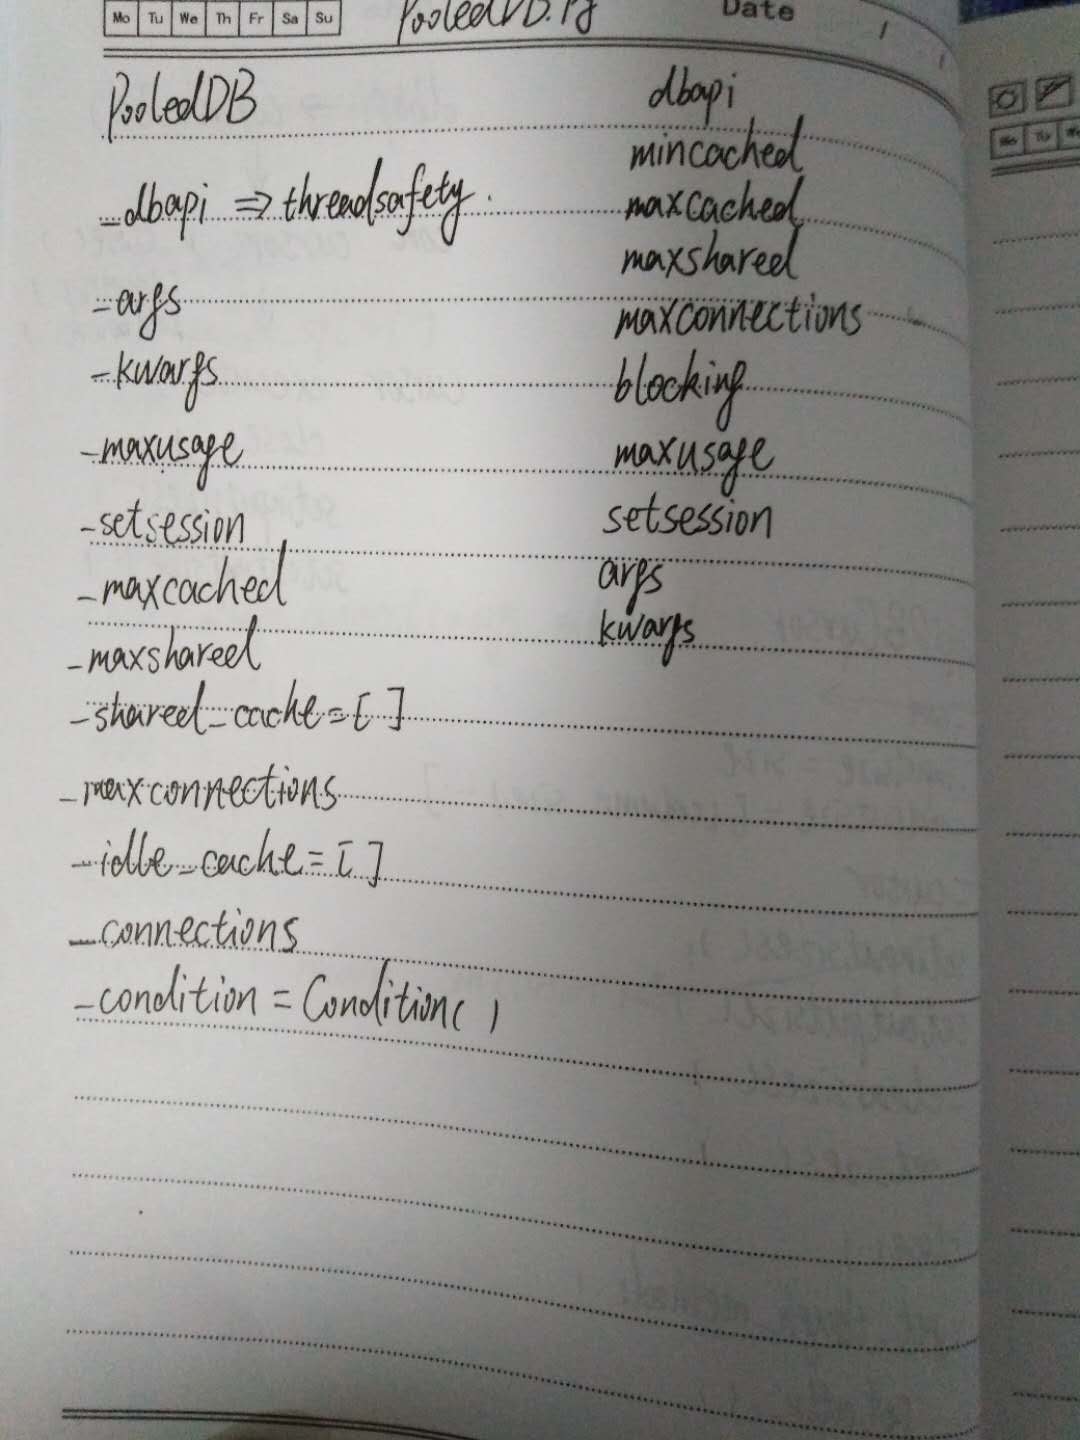 Mo Tu We Th Fr Sa Su
PooledDB.py
Date
PooledDB
_dbapi => threadsafety.
_args
_kwargs
_maxusage
_setsession
_maxcached
_maxshared
_shared_cache = [ ]
_maxconnections
_idle_cache = [ ]
_connections
_condition = Condition( )
dbapi
mincached
maxcached
maxshared
maxconnections
blocking
maxusage
setsession
args
kwargs
Mo Tu We